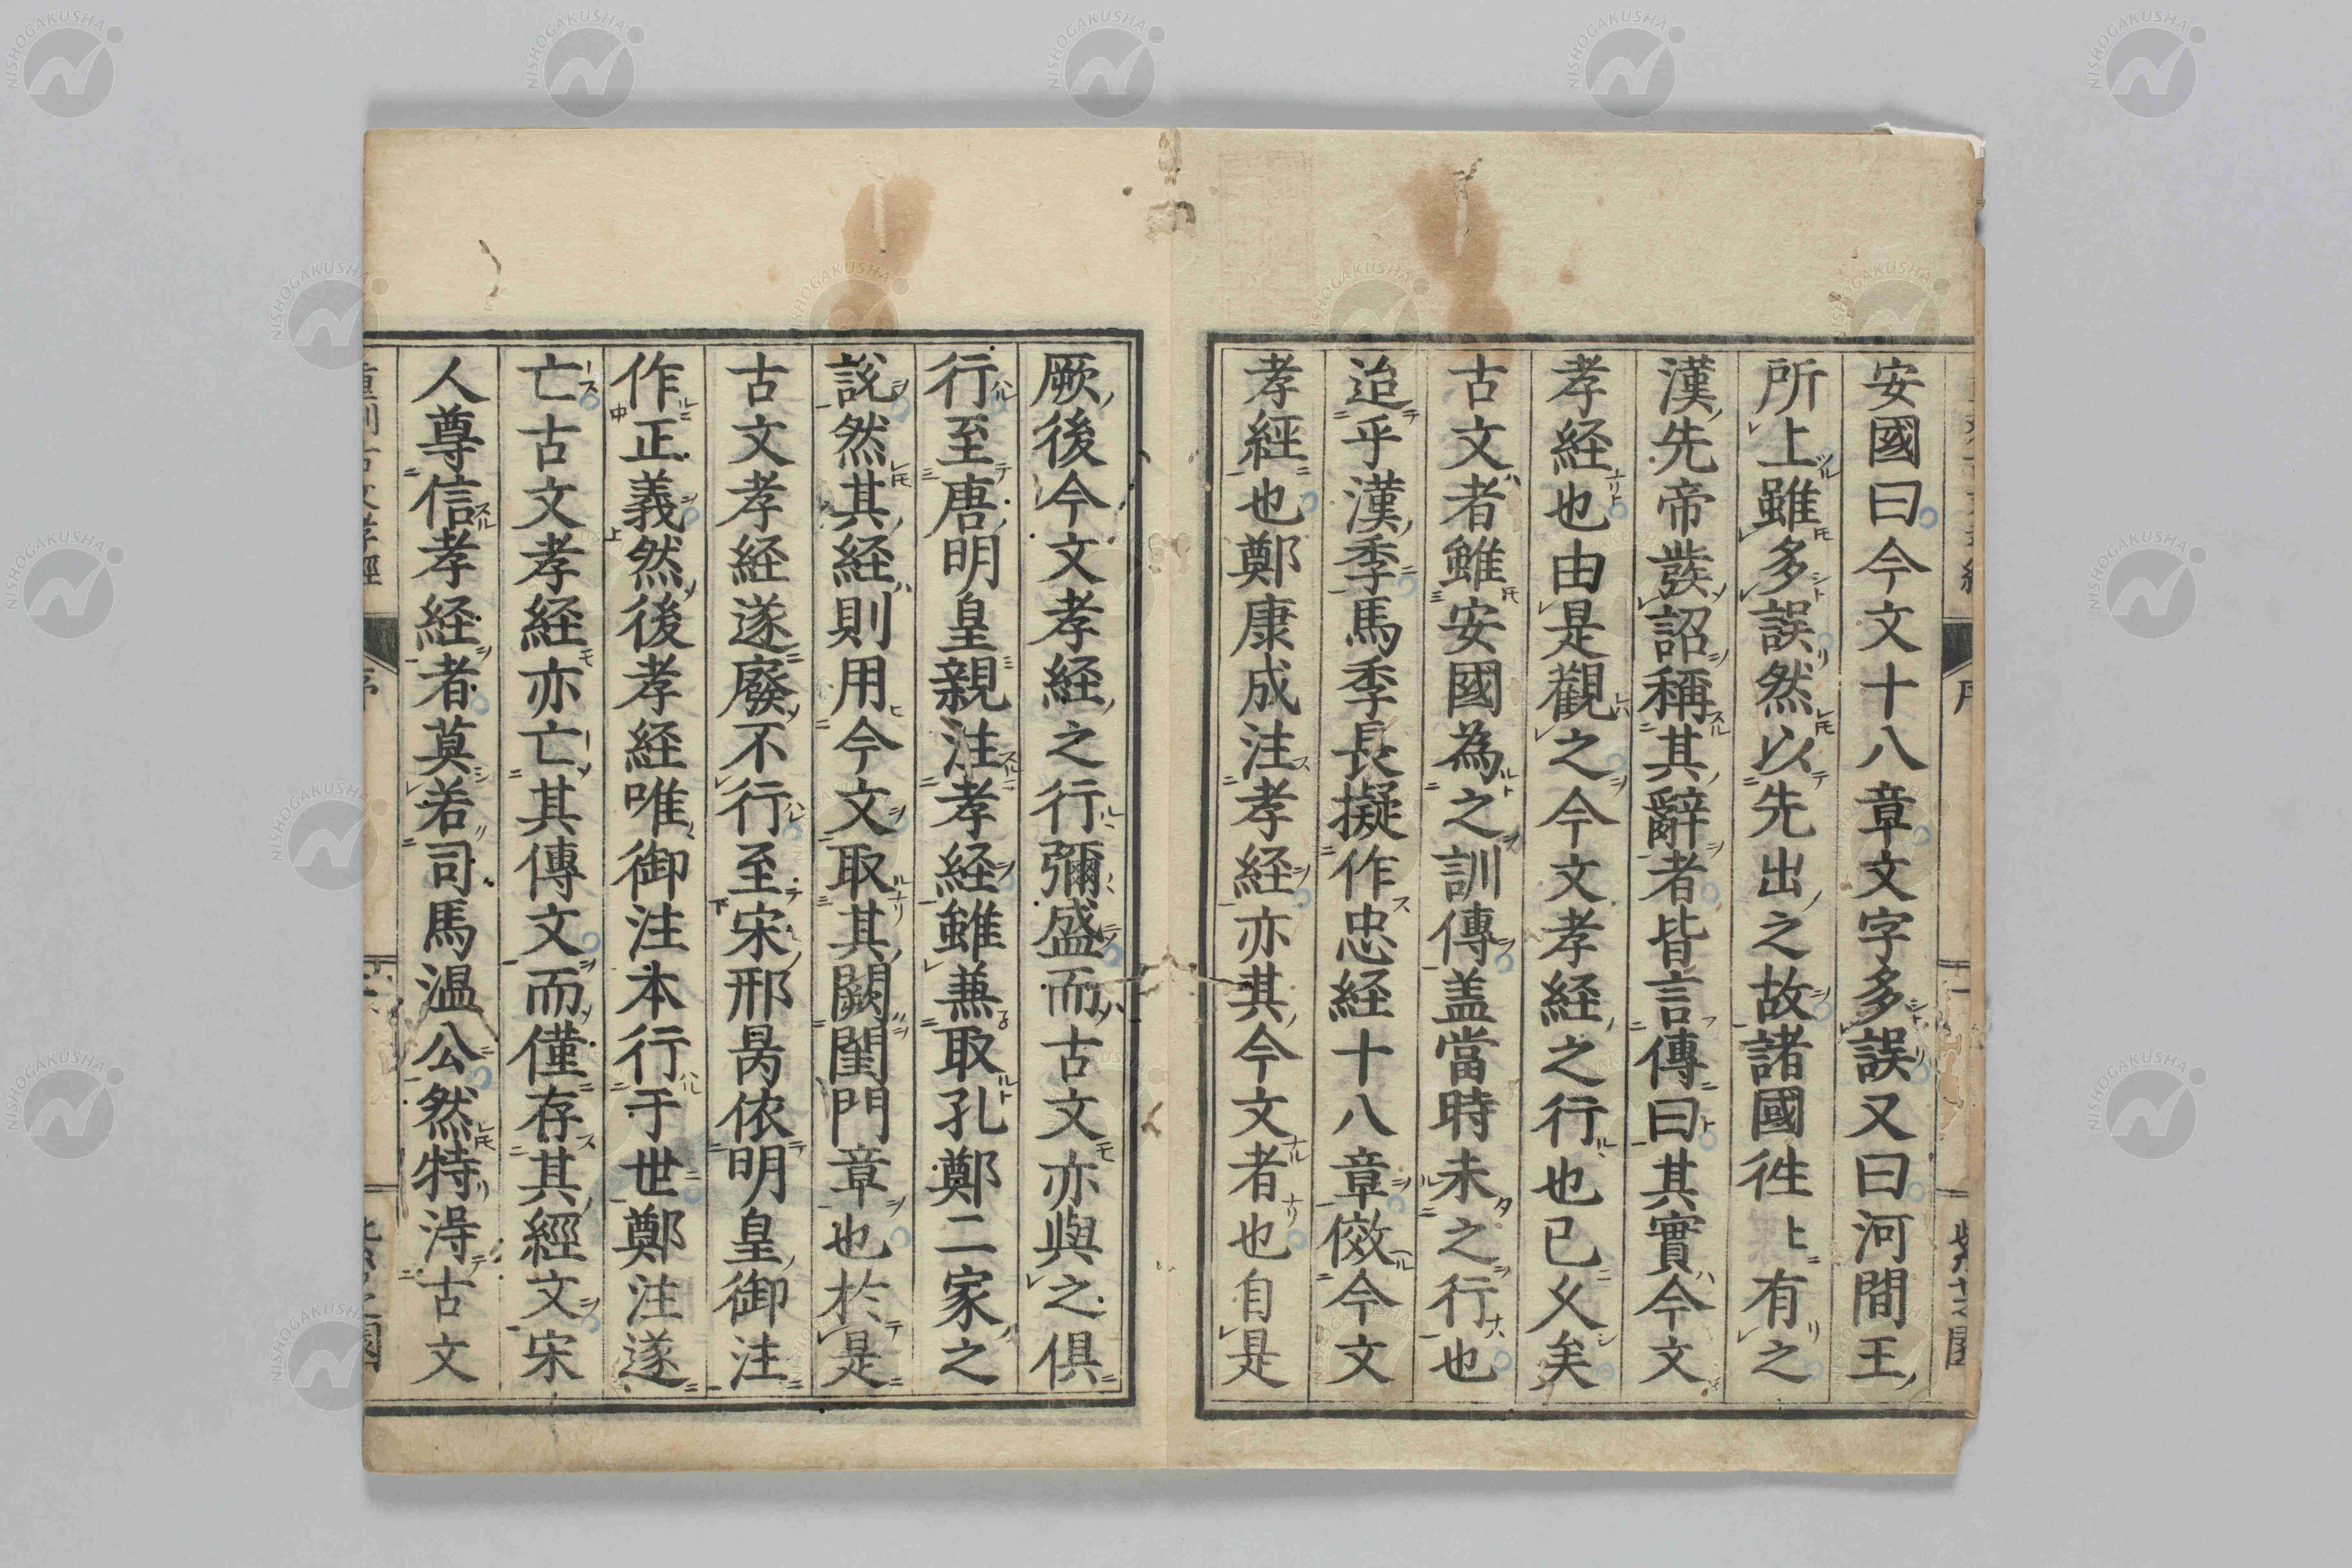 安國曰今文十八章文字多誤又曰河間王
所上雖多誤然以先出之故諸國徃上有之
漢先帝發詔稱其辭者皆言傳曰其實今文
孝経也由是觀之今文孝経之行也已久矣
古文者雖安國為之訓傳盖當時未之行也
迨乎漢季馬季長擬作忠経十八章傚今文
孝經也鄭康成注孝経亦其今文者也自是
厥後今文孝経之行彌盛而古文亦與之俱
行至唐明皇親注孝経雖兼取孔鄭二家之
說然其経則用今文取其闕閨門章也於是
古文孝経遂廢不行至宋邢昺依明皇御注
作正義然後孝経唯御注本行于世鄭注遂
亡古文孝経亦亡其傳文而僅存其經文宋
人尊信孝経者莫若司馬温公然特淂古文
NISHOGAKUSHA